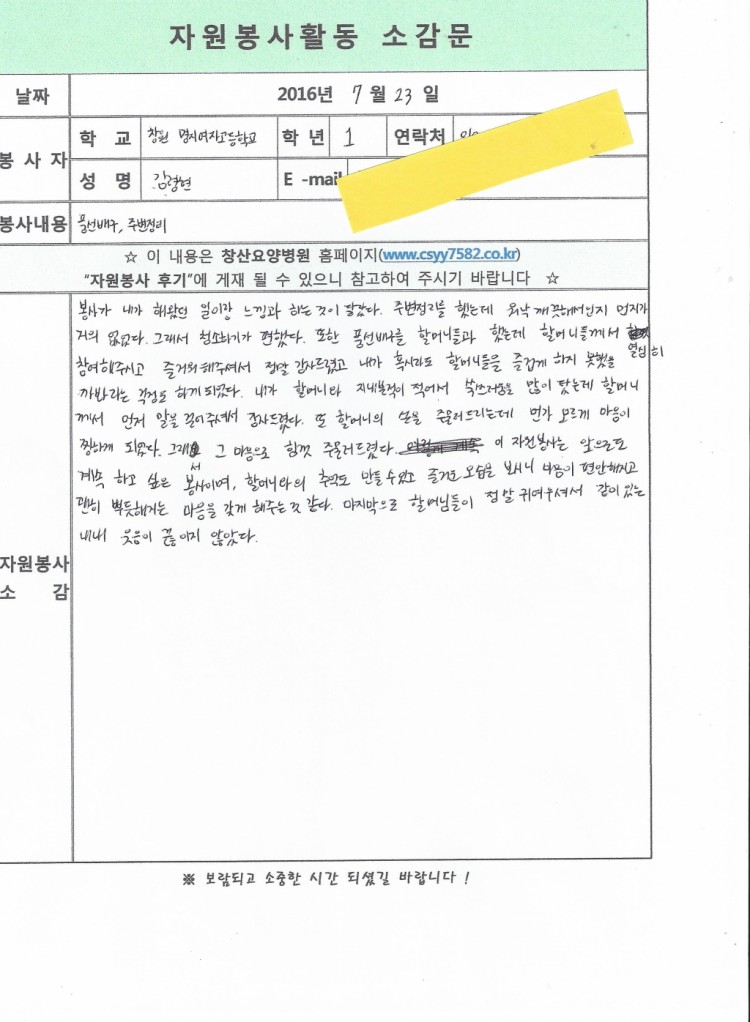 자원봉사활동 소감문
날짜 2016년 7월 23일
봉사자
학 교 창원 명지여자고등학교 학 년 1 연락처
성 명 김령현 E -mail
봉사내용 풍선배구, 주변정리
☆ 이 내용은 창산요양병원 홈페이지(www.csyy7582.co.kr)
"자원봉사 후기"에 게재 될 수 있으니 참고하여 주시기 바랍니다 ☆
봉사가 내가 해왔던 일이랑 느낌과 하는 것이 달랐다. 주변정리를 했는데 워낙 깨끗해서인지 먼지가
거의 없었다. 그래서 청소하기가 편했다. 또한 풍선배구를 할머니들과 했는데 할머니들께서
열심히
참여해주시고 즐거워해주셔서 정말 감사드렸고 내가 혹시라도 할머니들을 즐겁게 하지 못했을
까봐라는 걱정도 하게 되었다. 내가 할머니와 지내본적이 적어서 쑥쓰러움을 많이 탔는데 할머니
께서 먼저 말을 걸어주셔서 감사드렸다. 또 할머니의 손을 주물러드리는데 뭔가 모르게 마음이
찡하게 되었다. 그래서 그 마음으로 힘껏 주물러드렸다. 이 자원봉사는 앞으로도
계속 하고 싶은 봉사이며, 할머니와의 추억도 만들 수 있고 즐거운 모습을 보시니 마음이 편안해지고
괜히 뿌듯해지는 마음을 갖게 해주는 것 같다. 마지막으로 할머님들이 정말 귀여우셔서 같이 있는
내내 웃음이 끊이지 않았다.
자원봉사
소 감
※ 보람되고 소중한 시간 되셨길 바랍니다 !